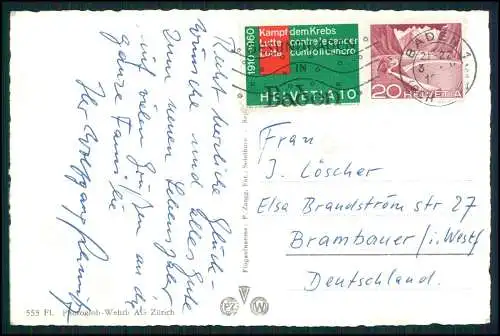 Recht herzliche Glück-
wünsche und alles Gute
zum neuen Lebensjahr
mit vielen Grüßen an die
ganze Familie
Ihr Wolfgang
1910-1960
Kampf dem Krebs
Lutte contre le cancer
Lotta contro il cancro
IN
Baden
HELVETIA 10
20 HELVETIA
BADEN 1
Frau
J. Löscher
Elsa Brandström str 27
Brambauer / i. Westf
Deutschland.
Flugaufnahme P. Zaugg, Fot., Solothurn
555 Fl. Photoglob-Wehrli AG Zürich
PZ
W